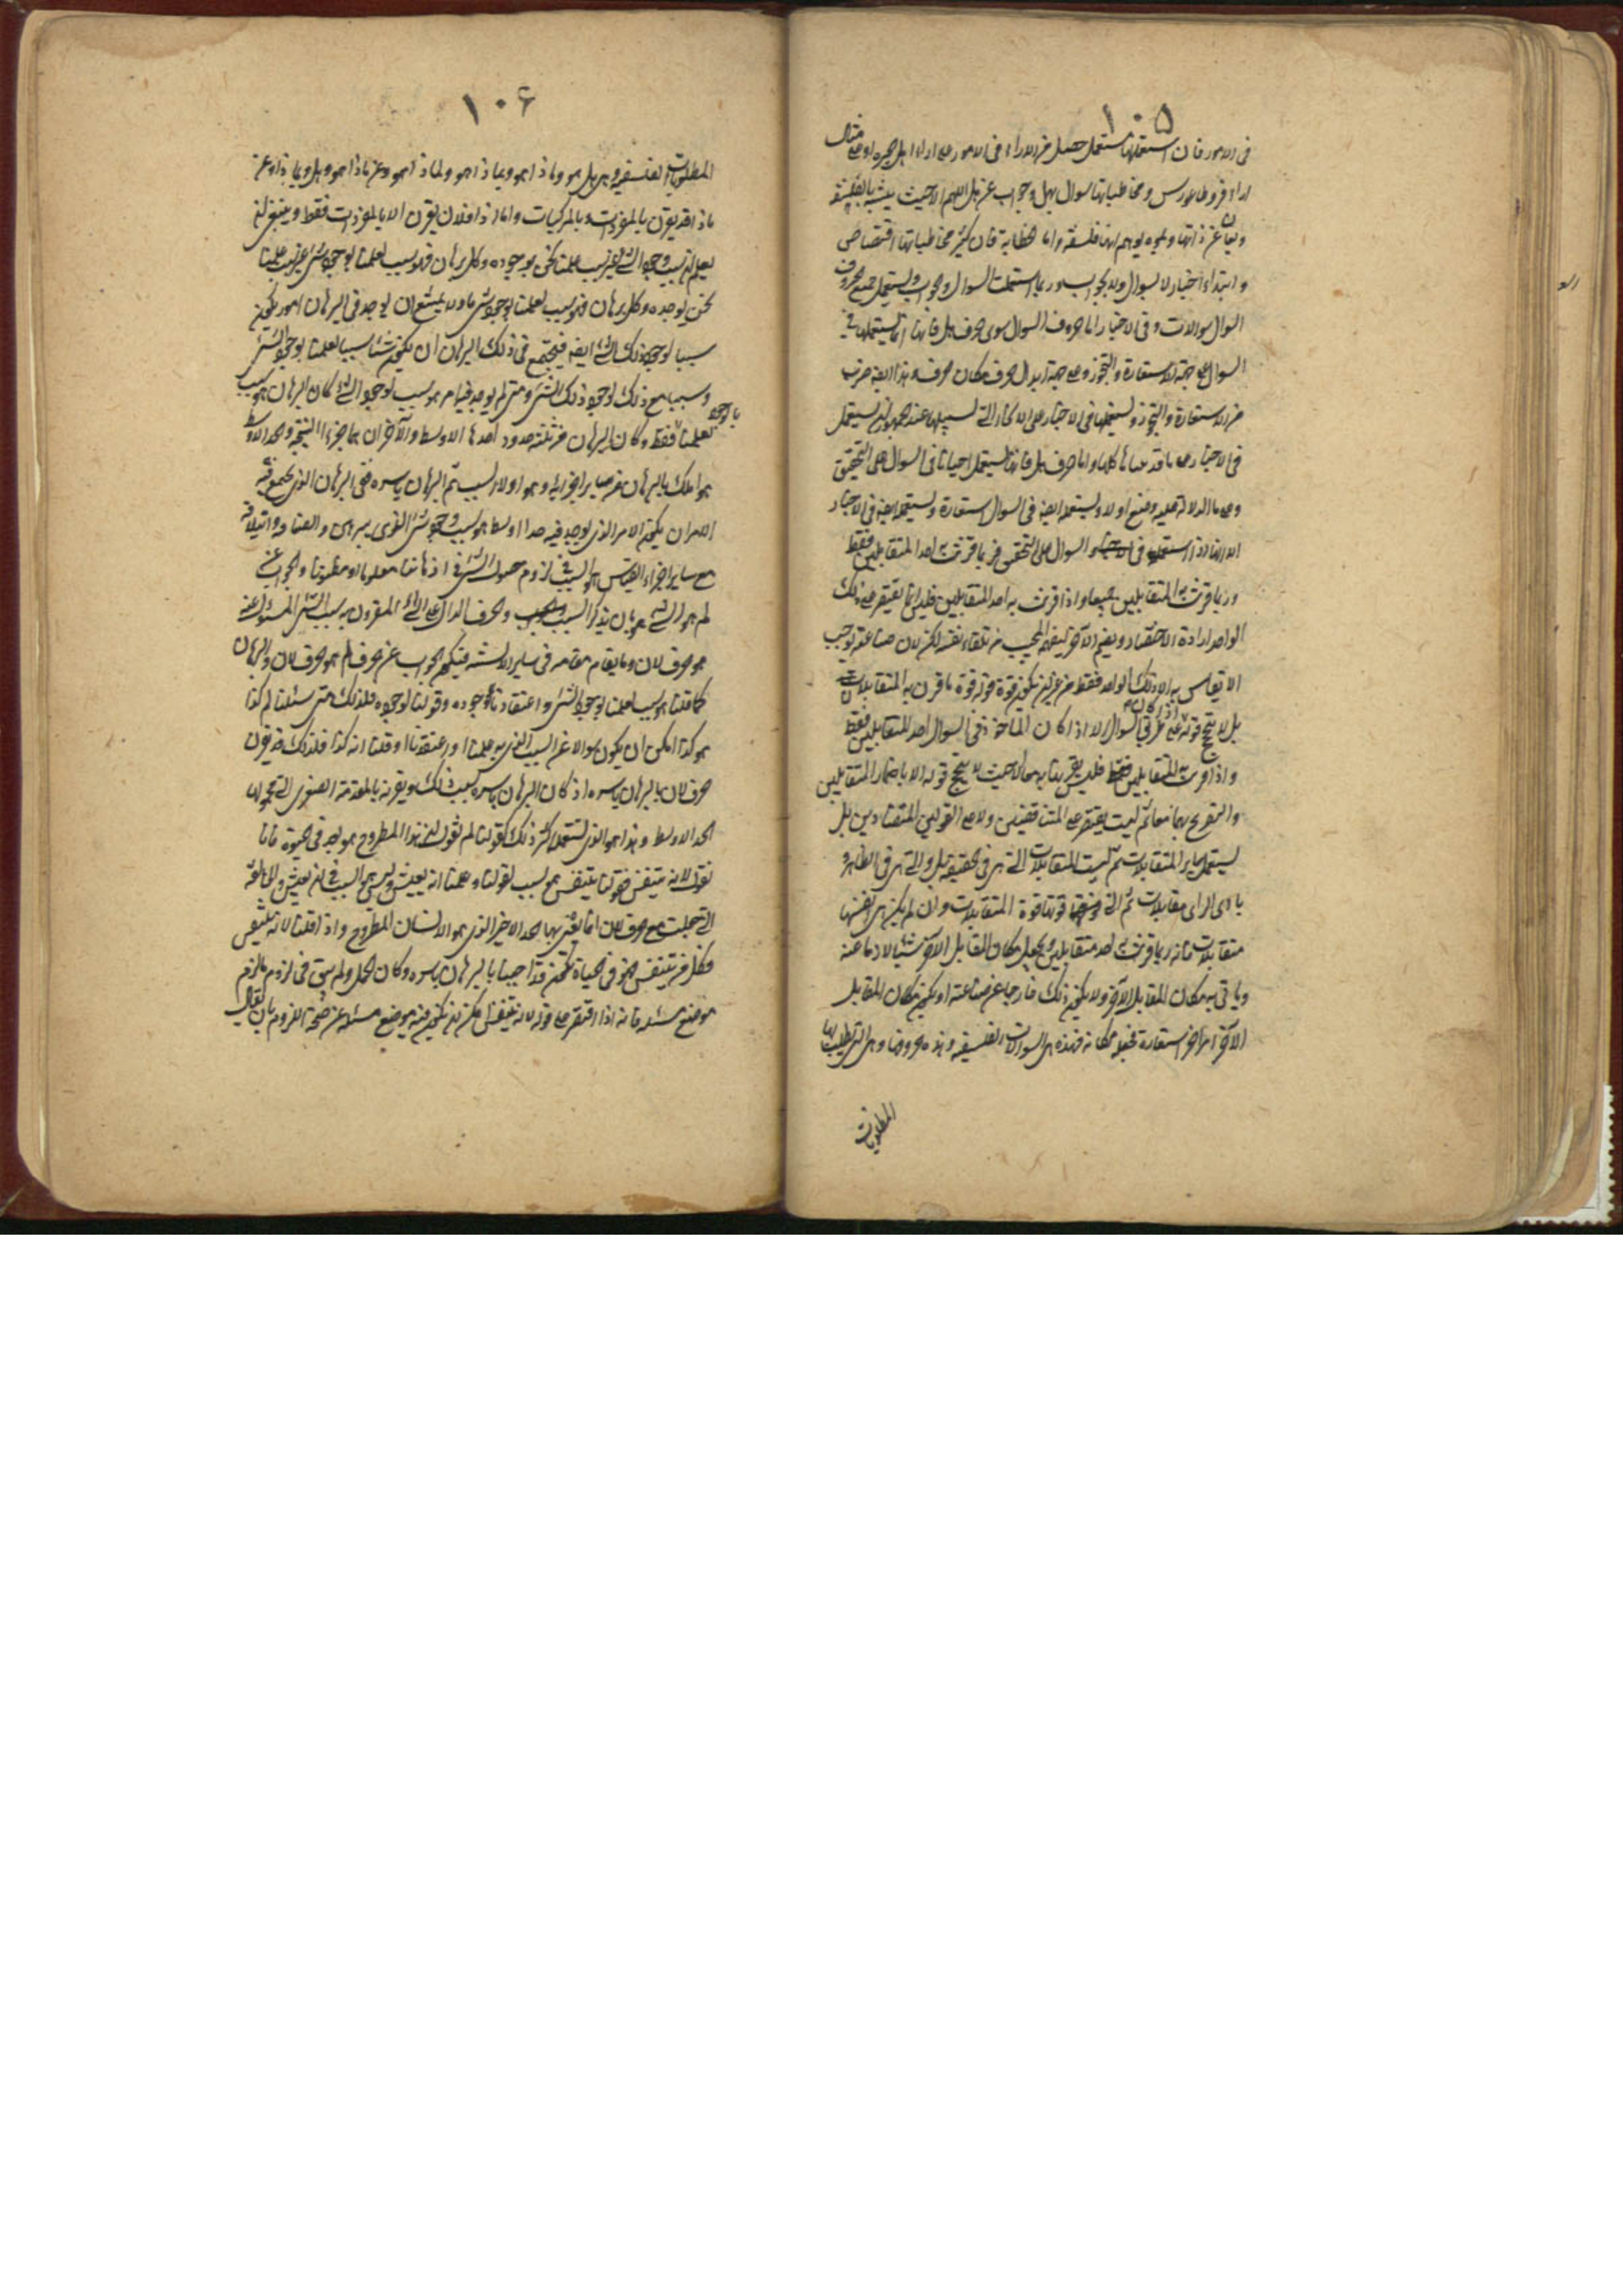 ١٠٥
في الامور فان استعملها مستعمل حصل من الاراء في الامور على اراء اهل الجزيرة او على مثال
اراء فرو طاغورس ومخاطباتها سؤال بهل وجواب عن هل اللهم الا حيث يتشبه بالفلسفة
عن ذاتها وتموه يوهم انها فلسفة واما الخطابة فان كثر مخاطباتها اقتصاص
وابتداء اخبار لا بسؤال ولا بجواب وربما استعملت السؤال والجواب وتستعمل جميع حروف
السؤال سوالات وفي الاخبار اما حروف السؤال سوى حرف هل فانها انما تستعملها في
السؤال على جهة الاستعارة والتجوز وعلى جهة ابدال حرف مكان حرف وهذا ايضا ضرب
من الاستعارة والتجوز وتستعملها في الاخبار على الانحاء التي سبيلها عند الجمهور ان تستعمل
في الاخبار على ما قد بيناها كلها واما حرف هل فانها تستعمل احيانا في السؤال على التحقيق
وعلى ما للدلالة عليه وضع اولا وتستعمله ايضا في السؤال استعارة وتستعمله ايضا في الاخبار
الا انها اذا استعملته في السؤال على التحقيق فربما قرنت به احد المتقابلين فقط
وربما قرنت به المتقابلين جميعا واذا قرنت به احد المتقابلين فليس انما تقتصر على ذلك
الواحد ارادة الاختصار ويضمر الآخر ليفهمه المجيب من تلقاء نفسه لكن لان صناعته توجب
الا تقاس به الا ذلك الواحد فقط من غير ان يكون قوة قوله قوة ما قرن به المتقابلات
بل لا ينجح قوله على طرق السؤال الا اذا كان الماخوذ في السؤال احد المتقابلين فقط
واذا قرنت به المتقابلين فليس يقرنها به معا الا حيث لا ينجح قوله الا باضمار المتقابلين
والتصريح بهما معا ثم ليست تقتصر على المتناقضين ولا على القولين المتضادين بل
تستعمل سائر المتقابلات ثم ليست المتقابلات التي هي في الحقيقة بل والتي هي في الظاهر
بادي الراي متقابلات ثم التي قوتها قوة المتقابلات وان لم يكن هي انفسها
متقابلات فانه ربما قرنت به احد متقابلين ويجعل مكان المقابل الآخر شيئا لازما عنه
وياتي به مكان المقابل الآخر ولا يكون ذلك خارجا عن صناعته او يكون مكان المقابل
الآخر امرا اخر استعاره فجعله مكانه فهذه هي السوالات الفلسفية وهذه حروفها وهي التي تطلب بها
المطلوبات
١٠٦
المطلوبات الفلسفية وهي هل هو وماذا هو وبماذا هو ولماذا هو وعن ماذا هو وهل وبماذا وعن
ماذا قد يقرن بالمفردات وبالمركبات واما ماذا فلا يقرن الا بالمفردات فقط وينبغي ان
يعلم ان سبب وجود الشي غير سبب علمنا نحن بوجوده وكل برهان فهو سبب لعلمنا بوجود شي
نحن بوجوده وكل برهان فهو سبب لعلمنا بوجود شي ما ولا يمتنع ان يوجد في البرهان امور يكون
سببا لوجود ذلك الشي ايضا فيجتمع في ذلك البرهان ان يكون سببا لعلمنا بوجود الشي
وسببا مع ذلك لوجود ذلك الشي ومتى لم يوجد فيها امر هو سبب لوجود الشي كان البرهان هو سبب
لعلمنا بالوجود فقط وكان البرهان من ثلثة حدود احدها الاوسط والآخران هما جزءا النتيجة والحد الاوسط
هو املك بالبرهان من سائر اجزائه وهو اولا السبب ثم البرهان باسره ففي البرهان الذي يجتمع فيه
الامران يكون الامر الذي يوجد فيه حدا اوسط هو سبب وجود شي الذي يبرهن والعناد وائتلافه
مع سائر اجزاء القياس هو السبب في لزوم حصول الشي في اذهاننا معلوما او مظنونا والجواب عن
لم هو الشي هو بان يذكر السبب والحرف الدال على الشي المقرون به سبب الشي المسئول عنه
هو حرف لان وما يقام مقامه في سائر الالسنة فيكون الجواب عن حرف لم هو حرف لان والبرهان
كما قلنا هو سبب لعلمنا بوجود الشي واعتقادنا وجوده وقولنا لوجوده فلذلك متى سئلنا لم كذا
هو كذا امكن ان يكون سوالا عن السبب الذي به علمنا او اعتقدنا او قلنا انه كذا فلذلك قد يقرن
حرف لان بالبرهان باسره اذ كان البرهان باسره سبب ذلك ويقرن بالمقدمة الصغرى التي محمولها
الحد الاوسط وهذا هو الذي نستعمله اكثر ذلك كقولنا لم نقول ان هذا المطروح هو بعد في الحيوة فانا
نقول لانه يتنفس فقولنا يتنفس هو سبب لقولنا وعلمنا انه يعيش وليس هو السبب في ان يعيش واللفظة
التي جعلت مع حرف لان انما يقترن بها الحد الاخير الذي هو الانسان المطروح واذا قلنا لانه يتنفس
وكل من يتنفس فهو في الحياة فنحن قد اجبنا بالبرهان باسره وكان اكمل ولم يبق في لزوم ما لزم
موضع مسئلة فانه اذا اقتصر على قوله لانه يتنفس امكن ان يكون فيه موضع مسئلة عن صحة اللزوم بان يقال